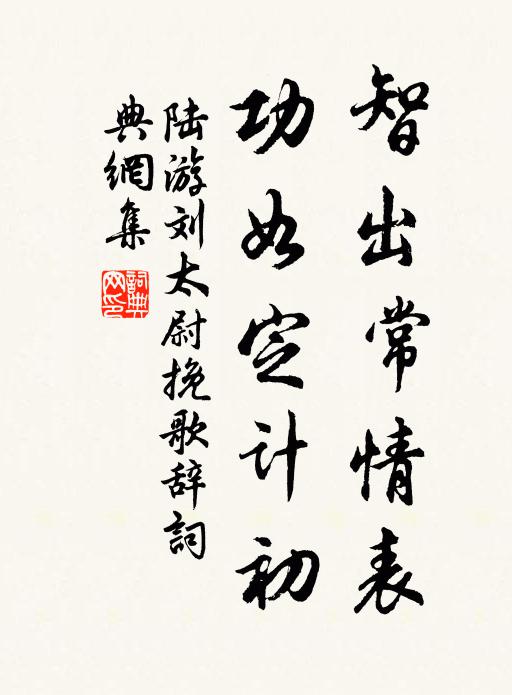 智出常情表
功如定计初
陆游刘太尉挽歌辞詞
典網集
詞典网印